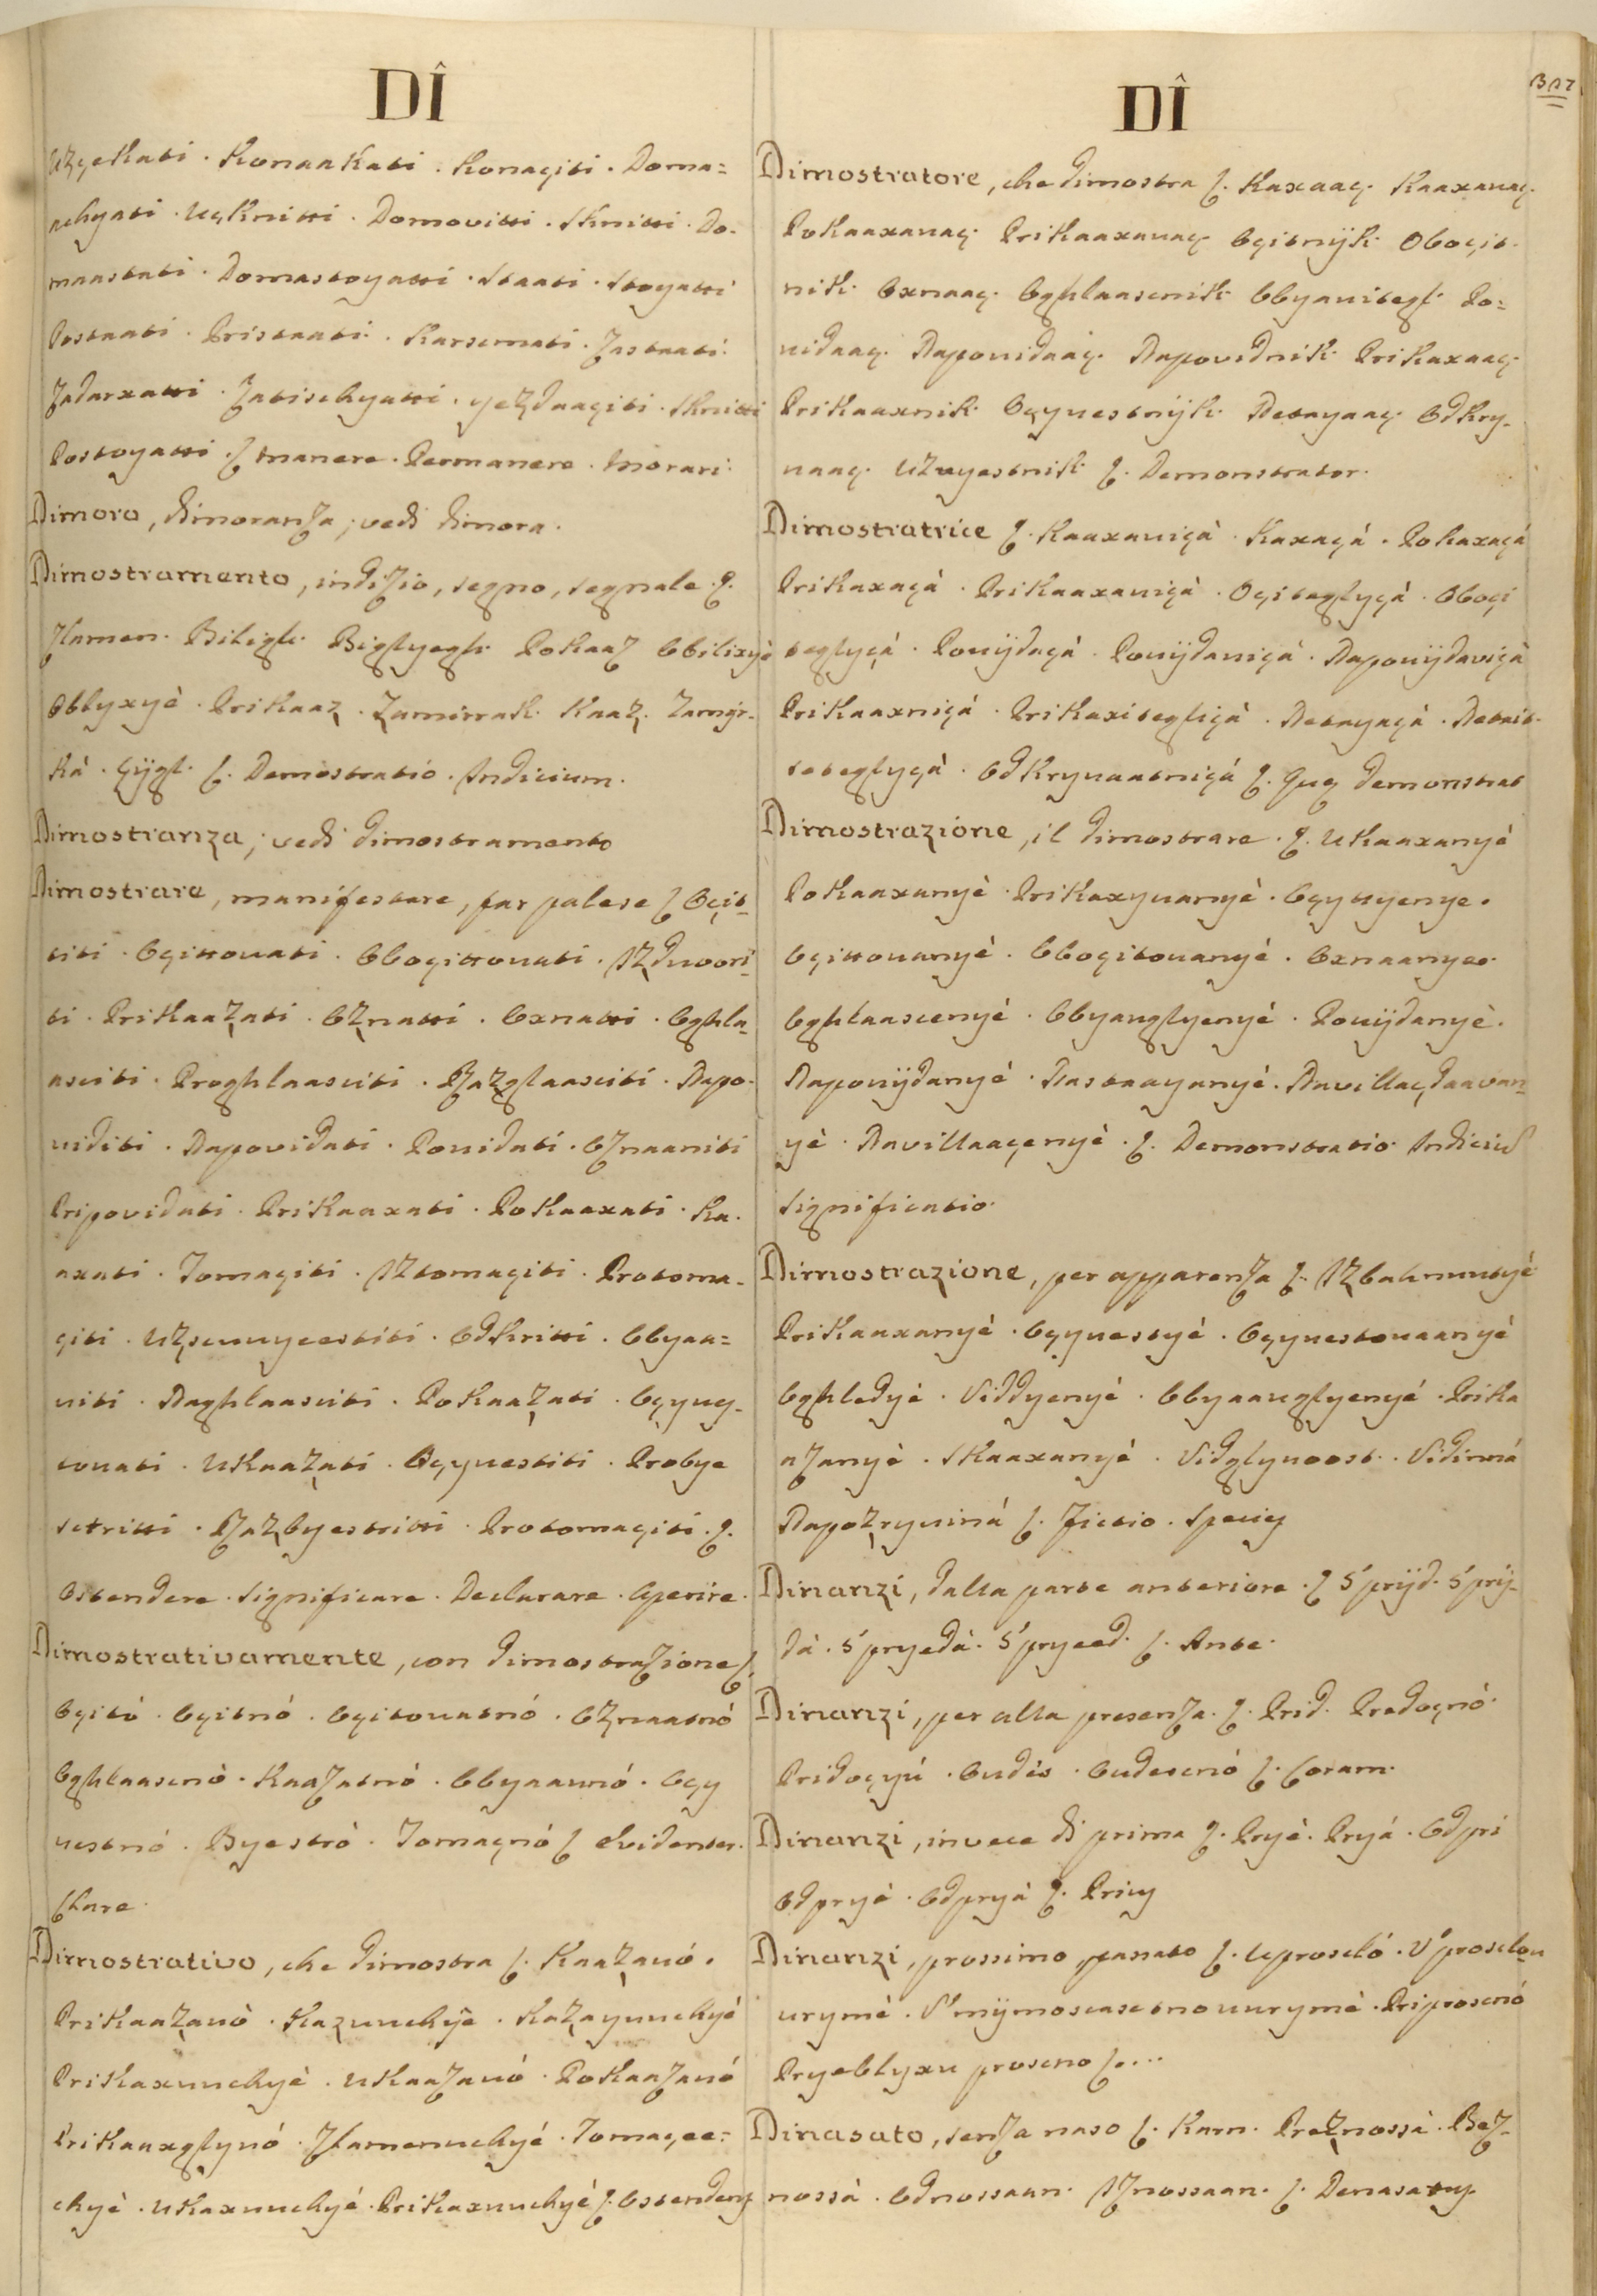 DÎ
Uzçekati · Konaakati · Konaçiti · Doma=
achyati · Uçknitti · Domovitti · Sknitti · Do-
maastati · Domastoyatti · Staati · Stoyatti
Postaati · Pristaati · Karsemati · Zastaati
Zadarxatti · Zatischyatti · yezdaaçiti · Sknitti
Postoyatti · L manere · Permanere · Morari
Dimoro, dimoranza; vedi dimora.
Dimostramento, indizio, segno, segnale · I.
Zlamen · Biligh · Biglyegh · Pokaaz Obilixyè
Oblyxyè · Prikaaz · Zamirrak · Kaaz · Zamyr-
kà · çijgh · L. Demostratio · Indicium.
Dimostranza; vedi dimostramento
Dimostrare, manifestare, far palese I Oçit-
titi · Oçittovati · Obboçittovati · Izdvoori-
ti · Prikaazati · Oznatti · Oxnatti · Oghla-
asciti · Proghlaasciti · Razglaasciti · Napo-
viditi · Napovidati · Povidati · Oznaaniti
Pripovidati · Prikaaxati · Pokaaxati · Ka-
axati · Tomaçiti · Iztomaçiti · Protoma-
çiti · Uzscuuyeestiti · Odkritti · Obyaa=
viti · Naghlaasciti · Pokaazati · Oçyuy-
tovati · Ukaazati · Oçyvestiti · Probye
setritti · Razbyestritti · Protomaçiti · I.
Ostendere · Significare · Declarare · Aperire.
Dimostrativamente, con dimostrazione I.
Oçitó · Oçitnó · Oçitovatnó · Oznaatnó
Oghlaascnò · Kaazatnó · Obyaavnó · Oçy
vestnó · Byestrò · Tomaçnó L Evidenter.
Clare.
Dimostrativo, che dimostra I. Kaazavó.
Prikaazavò · Kazuuchyê · Kazayuuchyè
Prikaxuuchyè · Ukaazavó · Pokaazavó
Prikaaxglyvó · Zlamenuchyé · Tomaçee=
chyè · Ukaxuuchyé · Prikaxuuchyè L. Ostendens
DÎ
Dimostratore, che dimostra I. Kaxaaç · Kaaxavaç
Pokaaxavaç · Prikaaxavaç Oçitnijk · Oboçit-
nik · Oxnaaç · Oghlaascnik · Obyavitegl · Po=
vidaaç · Napovidaaç · Napovidnik · Prikaxaaç
Prikaaxnik · Oçyvestnijk · Nestayaaç · Odkry-
vaaç · Uzvyestnik L. Demonstrator.
Dimostratrice I. Kaaxaviçà · Kaxaçá · Pokaxaçá
Prikaxaçà · Prikaaxaviçà · Oçiteglyçà · Oboçi
teglyçà · Povijdaçà · Povijdaviçà · Napovijdaviçà
Prikaaxniçà · Prikaxitegliçà
Odkryvaatniçà L. Quę demonstrat
Dimostrazione, il dimostrare · I. Ukaaxanyè
Pokaaxanyè · Prikaxyvanyè · Oçyttyenye.
Oçittovanyè · Obboçitovanyé · Oxnaanye.
Oghlaascenyè · Obyavglyenyé · Povijdanyè.
Napovijdanyè · Nastaayanyè · Navillaçdaavan-
yè · Navillaaçenyè · L. Demonstratio · Indiciũ
Significatio.
Dimostrazione, per apparenza I. Izbahnuutyè
Prikaaxanyè · Oçyvestyè · Oçyvestovaanyè
Oghledyè · Viddyenyè · Obyaavglyenyé · Prika
azanyè · Skaaxanyè · Vidglyvoost · Vidimá
Napozryvimá L. Fictio · Species
Dinanzi, dalla parte anteriore · I S'prijd · S'prij-
dà · S'pryedà · S'pryeed · L. Ante.
Dinanzi, per alla presenza · I. Prid · Predoçnó
Pridoçyú · Ovdis · Ovdescnó L. Coram.
Dinanzi, invece di prima I. Pryè · Pryá · Odpri
Odpryè · Odpryà L. Prius
Dinanzi, prossimo, passato I. Uproscló · U'prosclou
vrymè · S'mijmoscastno vvrymè · Priproscnó
Pryeblyxu proscno L....
Dinasato, senza naso I. Karn · Preznossà · Bez-
nossà · Odnossaan · Iznossaan · L. Denasatus